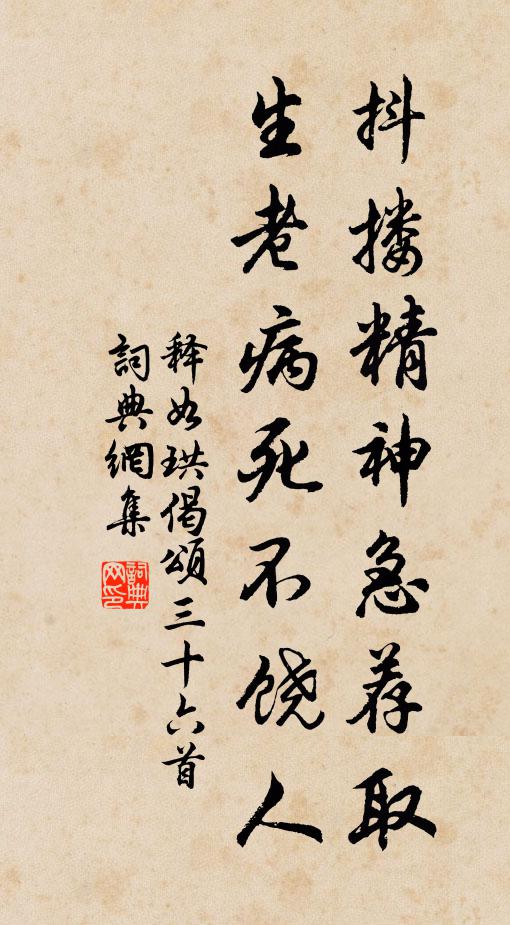 抖搂精神急荐取
生老病死不饶人
释如珙偈颂三十六首
詞典網集
詞典网印